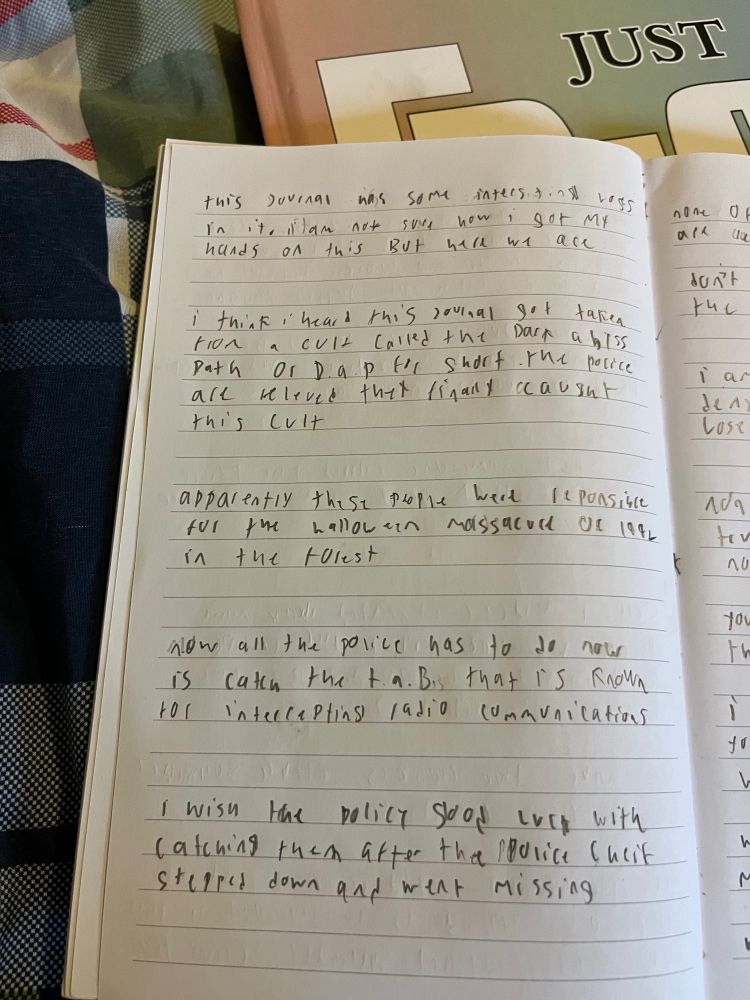 JUST
this journal has some intersting logs
in it. i am not sure how i got my
hands on this But here we are
i think i heard this journal got taken
from a cult called the Dark abyss
path or D.a.p for short. the police
are releved that finaly caught
this cult
apparently these people were reponsible
for the halloween massacure of 1992
in the forest
now all the police has to do now
is catch the t.a.B. that is known
for intercepting radio communications
i wish the policy good luck with
catching them after the police cheif
stepped down and went missing
none of
are
don't
the
i am
lose
no
you
th
i
yo